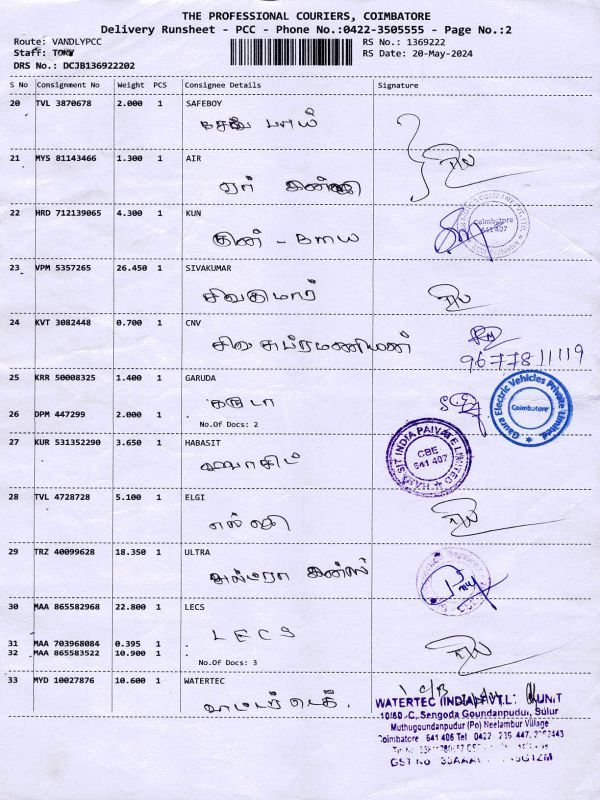 THE PROFESSIONAL COURIERS, COIMBATORE
Delivery Runsheet - PCC - Phone No.:0422-3505555 - Page No.:2
Route: VANDLYPCC RS No.: 1369222
Staff: TONY RS Date: 20-May-2024
DRS No.: DCJB136922202
S No Consignment No Weight PCS Consignee Details Signature
20 TVL 3870678 2.000 1 SAFEBOY
சேஃப் பாய்
21 MYS 81143466 1.300 1 AIR
ஏர்
22 HRD 712139065 4.300 1 KUN
குன் - BMW
Coimbatore
641 407
23 VPM 5357265 26.450 1 SIVAKUMAR
சிவகுமார்
24 KVT 3082448 0.700 1 CNV
சிவ சுப்ரமணியன்
9677811119
25 KRR 50008325 1.400 1 GARUDA
கருடா
Gaura Electric Vehicles Private Limited
Coimbatore
26 DPM 447299 2.000 1 .
No.Of Docs: 2
27 KUR 531352290 3.650 1 HABASIT
HABASIT INDIA PAIVATE LIMITED
CBE
641 407
ஹபாசிட்
28 TVL 4728728 5.100 1 ELGI
எல்ஜி
29 TRZ 40099628 18.350 1 ULTRA
அல்ட்ரா
30 MAA 865582968 22.800 1 LECS
LECS
31 MAA 703968084 0.395 1 .
32 MAA 865583522 10.900 1 .
No.Of Docs: 3
33 MYD 10027876 10.600 1 WATERTEC
வாட்டர் டெக்.
WATERTEC (INDIA) PVT.L UNIT
10/60 -C, Sengoda Goundanpudur, Sulur
Muthugoundanpudur (Po) Neelambur Village
Coimbatore 641 406 Tel 0422 236 447,
GST No